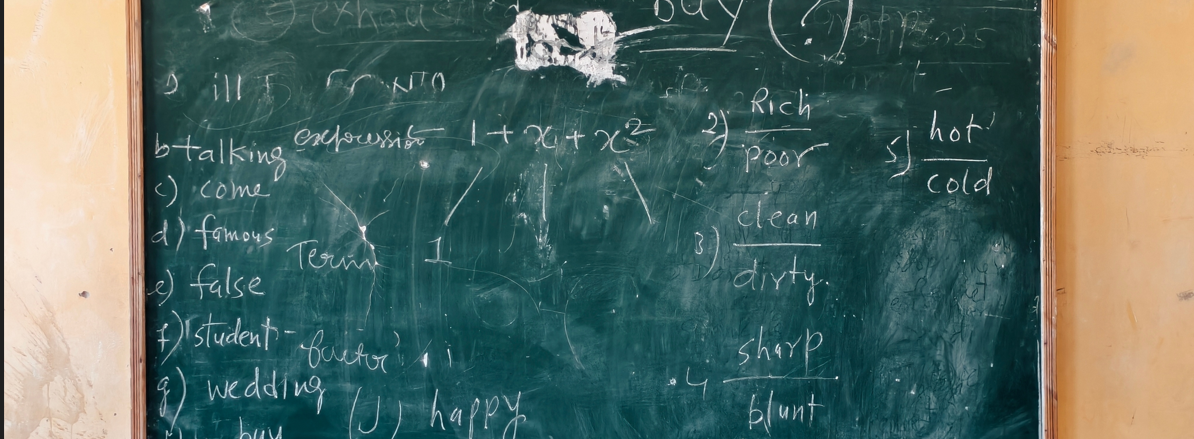 buy (?)
ill
b talking
expression 1 + x + x²
c) come
d) famous
Term 1
e) false
f) student
factor
g) wedding
(J) happy
buy
2) Rich
poor
3) clean
dirty.
4 sharp
blunt
5) hot
cold